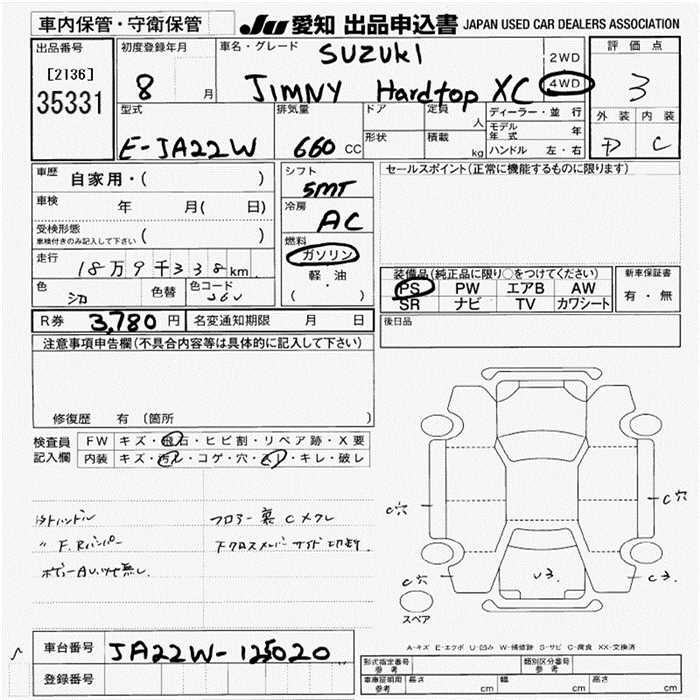 車内保管・守衛保管
JU 愛知 出品申込書 JAPAN USED CAR DEALERS ASSOCIATION
出品番号
[2136]
35331
初度登録年月
8 月
車名・グレード
SUZUKI
JIMNY Hardtop XC
2WD
4WD
評価点
3
外装 内装
D C
型式
E-JA22W
排気量
660 CC
ドア
定員
人
形状
積載
kg
ディーラー・並行
モデル年式 年
ハンドル 左・右
車歴 自家用・( )
車検 年 月( 日)
受検形態
車検付きのみ記入して下さい ( )
走行
18万9千338km
色 シロ 色替 色コード 26U
シフト
5MT
冷房
AC
燃料
ガソリン
軽油
( ・ )
セールスポイント(正常に機能するものに限ります)
装備品(純正品に限り○をつけてください)
PS PW エアB AW
SR ナビ TV カワシート
新車保証書
有・無
R券 3,780 円 名変通知期限 月 日
後日品
注意事項申告欄(不具合内容等は具体的に記入して下さい)
修復歴 有 (箇所 )
検査員
記入欄
FW キズ・飛石・ヒビ割・リペア跡・X要
内装 キズ・汚れ・コゲ・穴・スレ・キレ・破レ
外ハンドル
〃 F.Rバンパー
フロアー裏 Cメクレ
C穴
C穴
C穴
U3.
C3.
スペア
A-キズ E-エクボ U-凹み W-補修跡 S-サビ C-腐食 XX-交換済
車台番号 JA22W-125020
登録番号
形式指定番号
参考
類別区分番号
参考
車庫証明用
参考
長さ cm 幅 cm 高さ cm